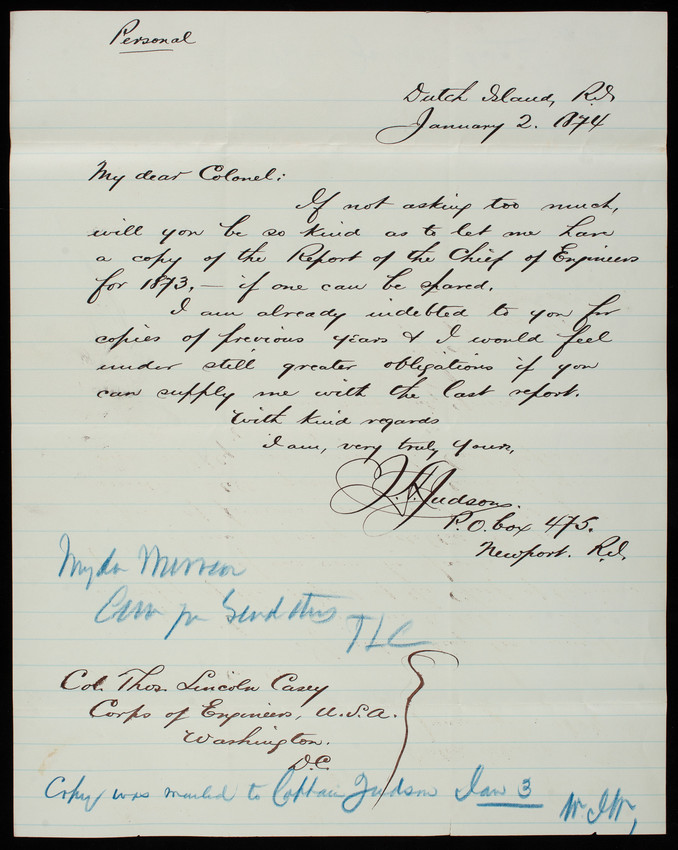 Personal
Dutch Island, R.I.
January 2. 1874
My dear Colonel:
If not asking too much,
will you be so kind as to let me have
a copy of the Report of the Chief of Engineers
for 1873, — if one can be spared.
I am already indebted to you for
copies of previous years & I would feel
under still greater obligations if you
can supply me with the last report.
With kind regards
I am, very truly yours,
Judson.
P.O. box 475.
Newport. R.I.
My dr
Can you send this
TLC
Col. Thos. Lincoln Casey
Corps of Engineers, U.S.A.
Washington.
D.C.
Copy was mailed to Captain Judson Jan 3